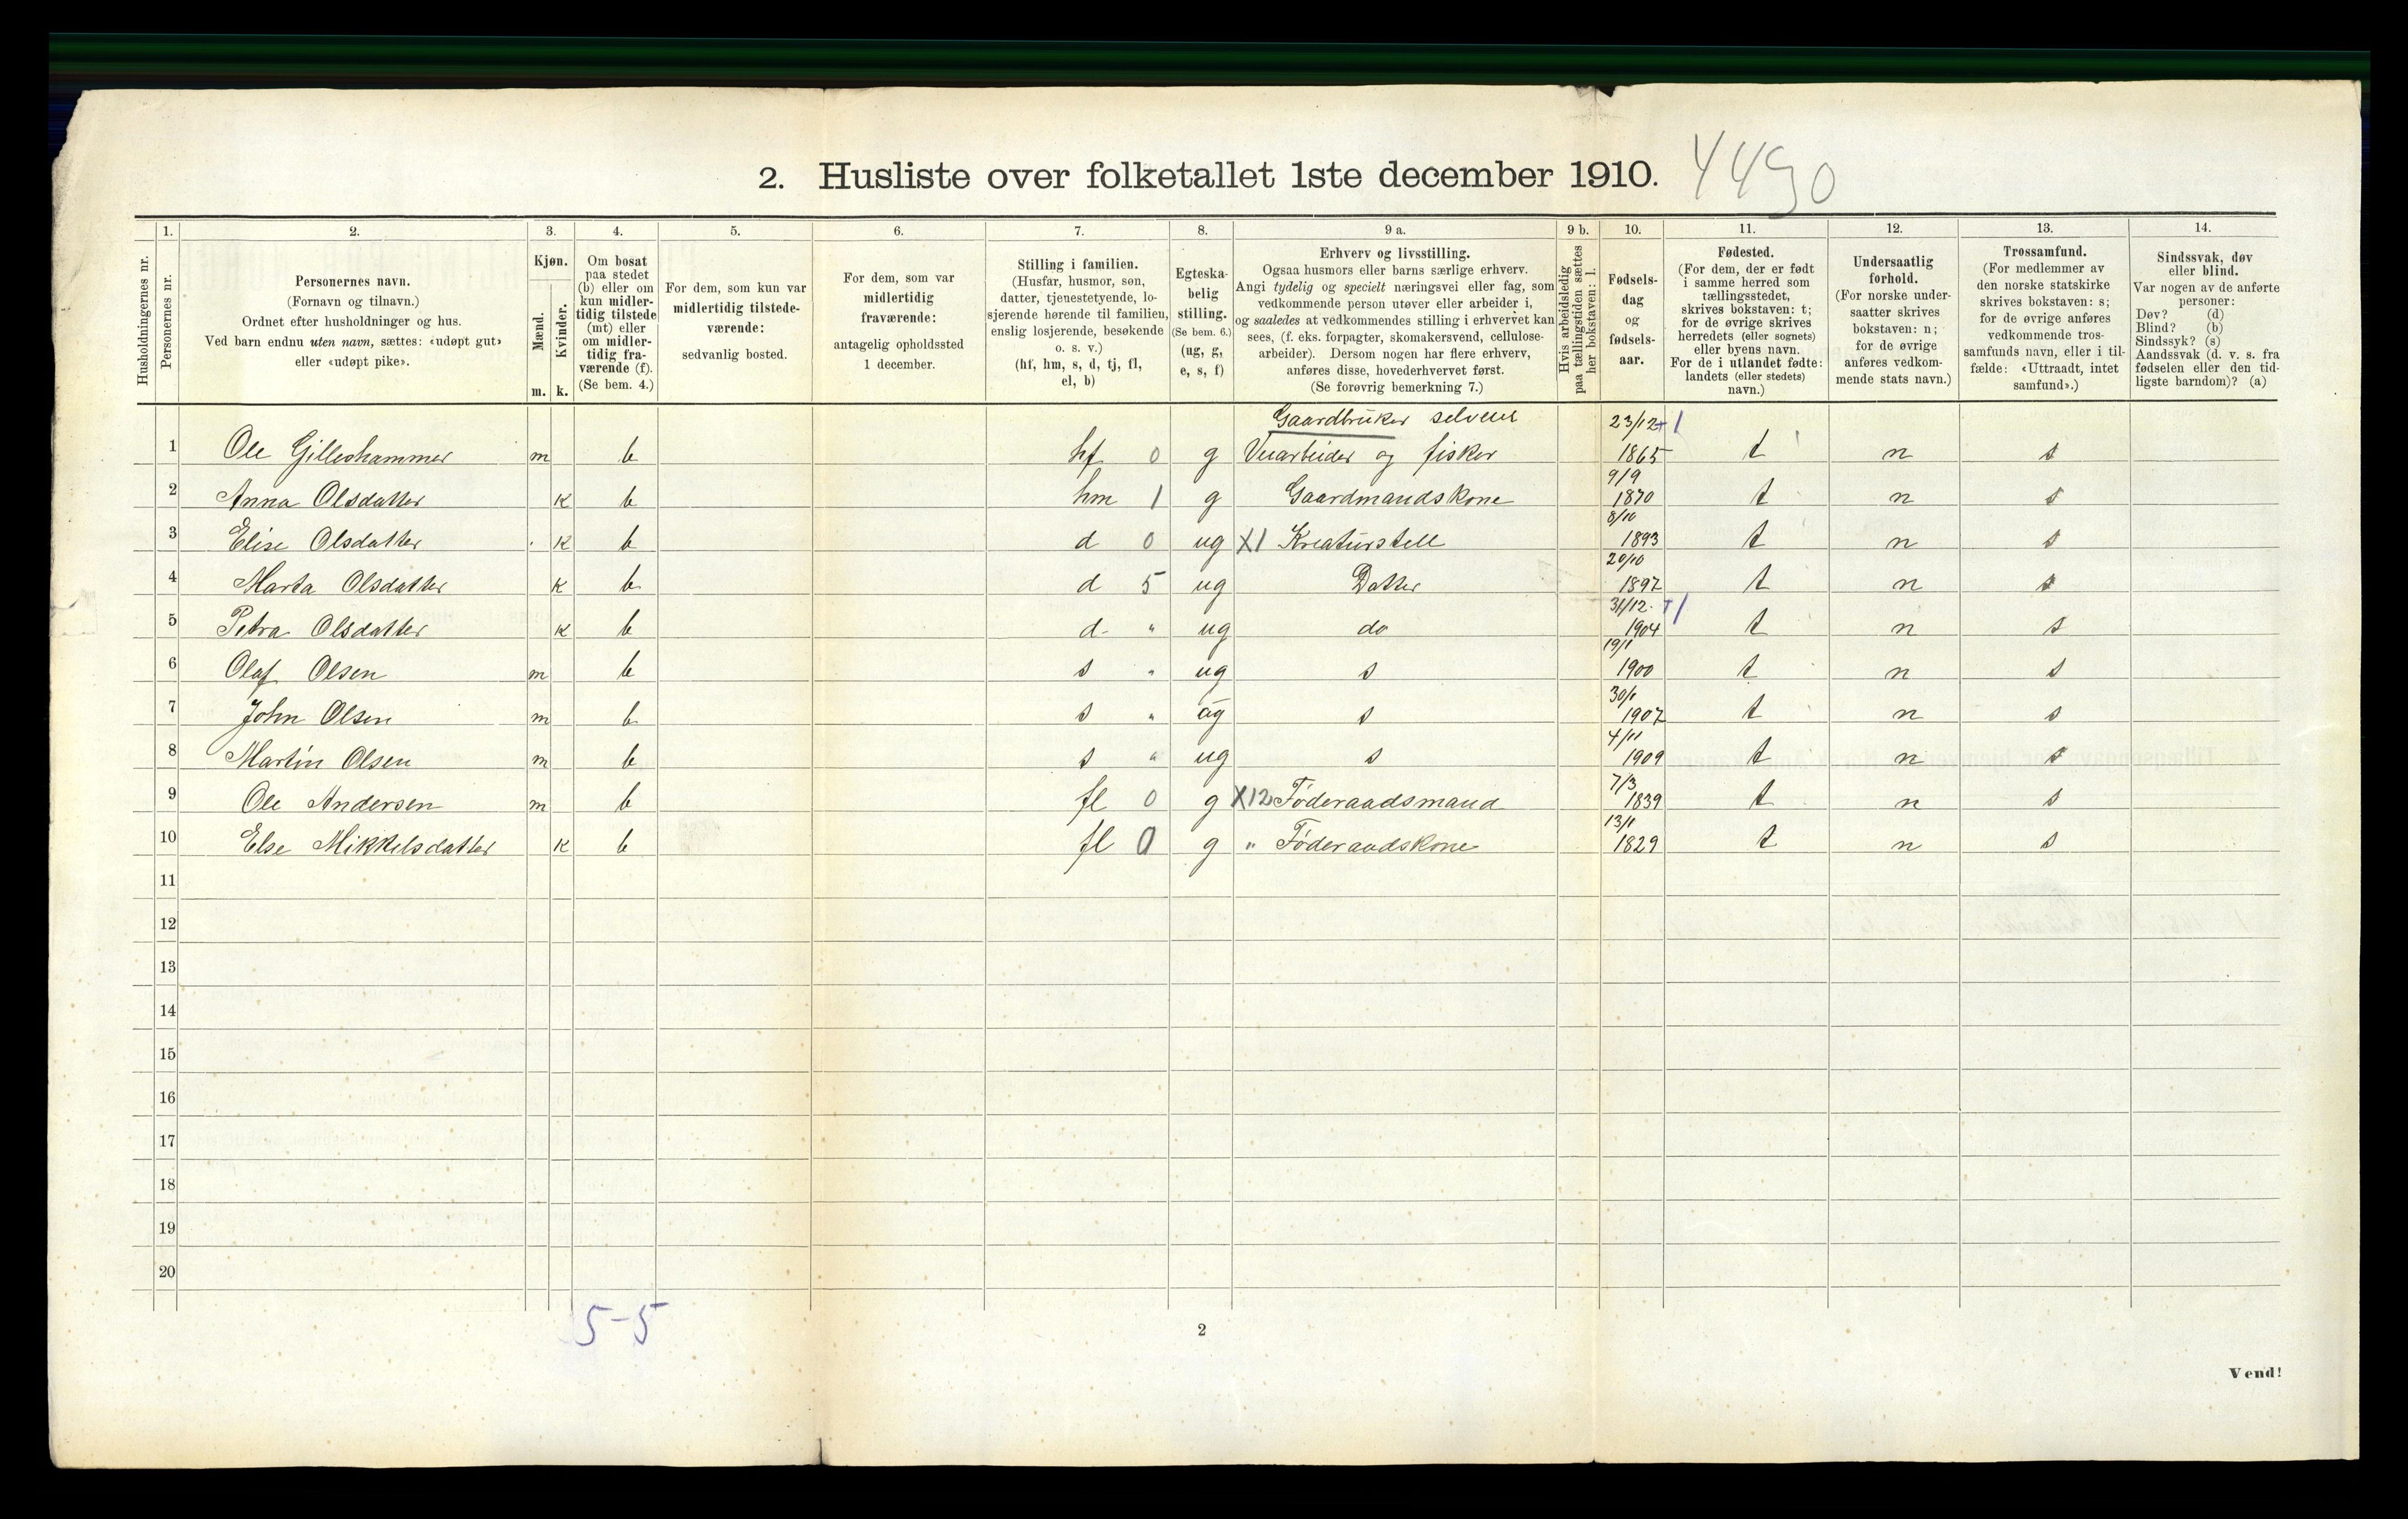 2. Husliste over folketallet 1ste december 1910. 4490
Husholdningernes nr.
1. Personernes nr.
2. Personernes navn.
(Fornavn og tilnavn.)
Ordnet efter husholdninger og hus.
Ved barn endnu uten navn, sættes: «udøpt gut»
eller «udøpt pike».
3. Kjøn.
Mænd. m.
Kvinder. k.
4. Om bosat
paa stedet
(b) eller om
kun midler-
tidig tilstede
(mt) eller
om midler-
tidig fra-
værende (f).
(Se bem. 4.)
5. For dem, som kun var
midlertidig tilstede-
værende:
sedvanlig bosted.
6. For dem, som var
midlertidig
fraværende:
antagelig opholdssted
1 december.
7. Stilling i familien.
(Husfar, husmor, søn,
datter, tjenestetyende, lo-
sjerende hørende til familien,
enslig losjerende, besøkende
o. s. v.)
(hf, hm, s, d, tj, fl,
el, b)
8. Egteska-
belig
stilling.
(Se bem. 6.)
(ug, g,
e, s, f)
9 a. Erhverv og livsstilling.
Ogsaa husmors eller barns særlige erhverv.
Angi tydelig og specielt næringsvei eller fag, som
vedkommende person utøver eller arbeider i,
og saaledes at vedkommendes stilling i erhvervet kan
sees, (f. eks. forpagter, skomakersvend, cellulose-
arbeider). Dersom nogen har flere erhverv,
anføres disse, hovederhvervet først.
(Se forøvrig bemerkning 7.)
9 b. Hvis arbeidsledig
paa tællingstiden sættes
her bokstaven: l.
10. Fødsels-
dag
og
fødsels-
aar.
11. Fødested.
(For dem, der er født
i samme herred som
tællingsstedet,
skrives bokstaven: t;
for de øvrige skrives
herredets (eller sognets)
eller byens navn.
For de i utlandet fødte:
landets (eller stedets)
navn.)
12. Undersaatlig
forhold.
(For norske under-
saatter skrives
bokstaven: n;
for de øvrige
anføres vedkom-
mende stats navn.)
13. Trossamfund.
(For medlemmer av
den norske statskirke
skrives bokstaven: s;
for de øvrige anføres
vedkommende tros-
samfunds navn, eller i til-
fælde: «Uttraadt, intet
samfund».)
14. Sindssvak, døv
eller blind.
Var nogen av de anførte
personer:
Døv? (d)
Blind? (b)
Sindssyk? (s)
Aandssvak (d. v. s. fra
fødselen eller den tid-
ligste barndom)? (a)
Gaardbruker selveier 23/12 + 1
1 Ole Gilleshammer m b hf 0 g Veiarbeider og fisker 1865 t n s
9/9
2 Anna Olsdatter k b hm 1 g Gaardmandskone 1870 t n s
8/10
3 Elise Olsdatter k b d 0 ug X1 Kreaturstell 1893 t n s
20/10
4 Marta Olsdatter k b d 5 ug Datter 1897 t n s
31/12 + 1
5 Petra Olsdatter k b d " ug do 1904 t n s
19/1
6 Olaf Olsen m b s " ug s 1900 t n s
30/1
7 John Olsen m b s " ug s 1907 t n s
4/11
8 Martin Olsen m b s " ug s 1909 t n s
7/3
9 Ole Andersen m b fl 0 g X12 Føderaadsmand 1839 t n s
13/1
10 Else Mikkelsdatter k b fl 0 g " Føderaadskone 1829 t n s
11
12
13
14
15
16
17
18
19
20
5-5
2
Vend!